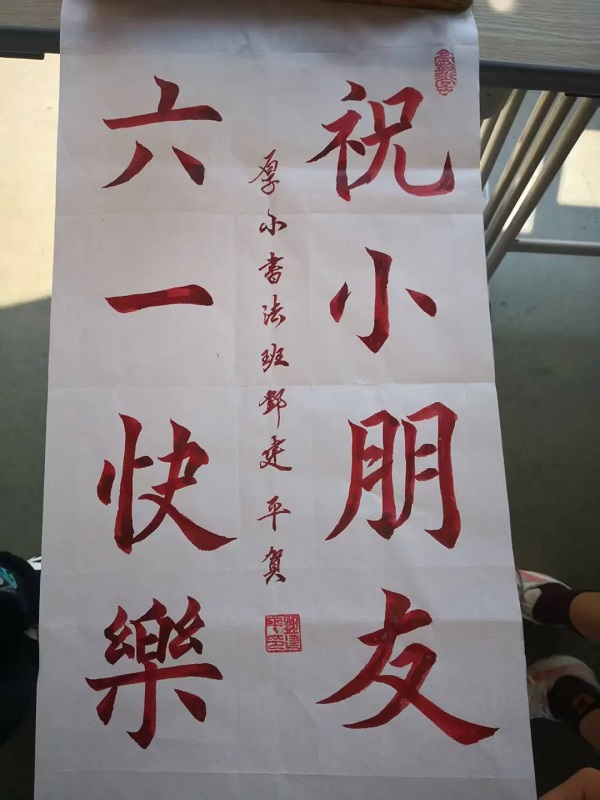 祝小朋友
六一快樂
厚小書法班鄧建平賀